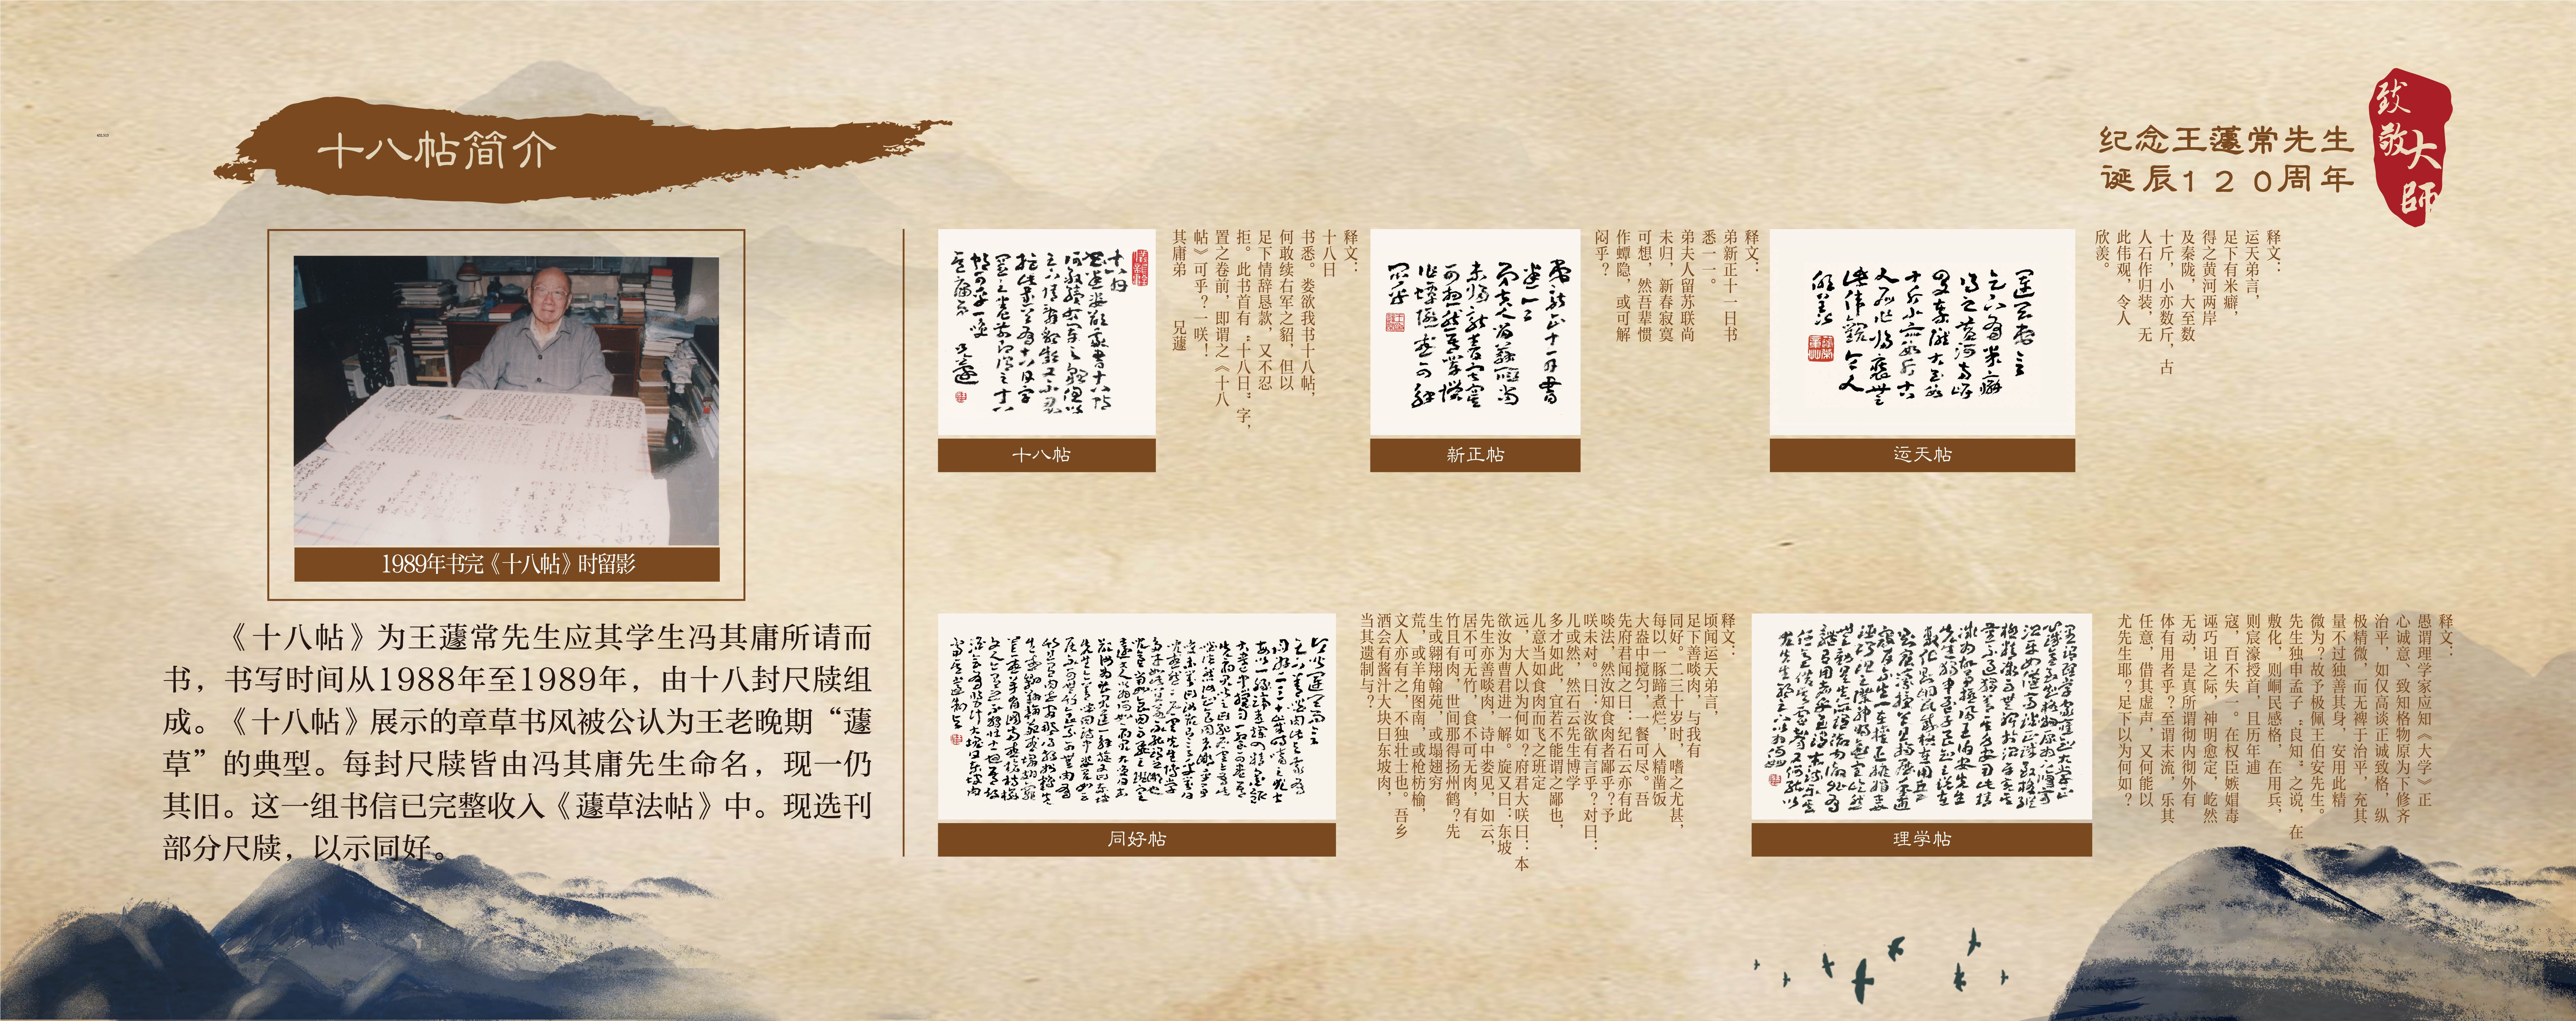 十八帖简介
纪念王蘧常先生
诞辰120周年
致敬大師
1989年书完《十八帖》时留影
《十八帖》为王蘧常先生应其学生冯其庸所请而
书，书写时间从1988年至1989年，由十八封尺牍组
成。《十八帖》展示的章草书风被公认为王老晚期“蘧
草”的典型。每封尺牍皆由冯其庸先生命名，现一仍
其旧。这一组书信已完整收入《蘧草法帖》中。现选刊
部分尺牍，以示同好。
十八帖
释文：
十八日
书悉。娄欲我书十八帖，
何敢续右军之貂，但以
足下情辞恳款，又不忍
拒。此书首有“十八日”字，
置之卷前，即谓之《十八
帖》可乎？一咲！
其庸弟 兄蘧
新正帖
释文：
弟新正十一日书
悉一一。
弟夫人留苏联尚
未归，新春寂寞
可想，然吾辈惯
作蟫隐，或可解
闷乎？
运天帖
释文：
运天弟言，
足下有米癖，
得之黄河两岸
及秦陇，大至数
十斤，小亦数斤，古
人石作归装，无
此伟观，令人
欣羡。
同好帖
释文：
顷闻运天弟言，
足下善啖肉，与我有
同好。二三十岁时，嗜之尤甚，
每以一豚蹄煮烂，入精凿饭
大盎中搅匀，一餐可尽。吾
先府君闻之曰：纪石云亦有此
啖法，然汝知食肉者鄙乎？予
咲未对。曰：汝欲有言乎？对曰：
儿或然，然石云先生博学
多才如此，宜若不能谓之鄙也，
儿意当如食肉而飞之班定
远，大人以为何如？府君大咲曰：本
欲汝为曹君进一解。旋又曰：东坡
先生亦善啖肉，诗中娄见，如云，
居不可无竹，食不可无肉，有
竹且有肉，世间那得扬州鹤？先
生或翱翔翰苑，或塌翅穷
荒，或羊角图南，或枪枋榆，
文人亦有之，不独壮士也。吾乡
酒会有酱汁大块曰东坡肉，
当其遗制与？
理学帖
释文：
愚谓理学家应知《大学》正
心诚意、致知格物原为下修齐
治平，如仅高谈正诚致格，纵
极精微，而无裨于治平，充其
量不过独善其身，安用此精
微为？故予极佩王伯安先生。
先生独申孟子“良知”之说，在
敷化，则峒民感格，在用兵，
则宸濠授首，且历年逋
寇，百不失一。在权臣嫉媢毒
诬巧诅之际，神明愈定，屹然
无动，是真所谓彻内彻外有
体有用者乎？至谓末流，乐其
任意，借其虚声，又何能以
尤先生耶？足下以为何如？